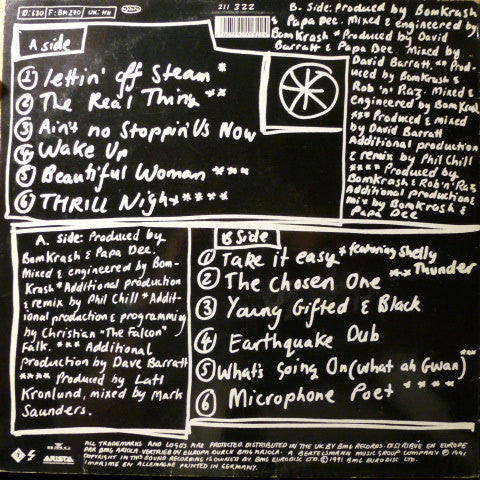 D: 630 F: BM270 UK: HH
211 322
A side
① Lettin' off Steam *
② The Real Thing **
③ Ain't no Stoppin' Us Now
④ Wake Up
⑤ Beautiful Woman ***
⑥ THRILL Night ****
B. Side: Produced by BomKrash
& Papa Dee. Mixed & engineered by
BomKrash * Produced by David
Barratt & Papa Dee. mixed by
David Barratt. ** Prod-
uced by BomKrash &
Rob 'n' Raz. Mixed &
engineered by Bom Krash
*** Produced & mixed
by David Barratt
Additional production
& remix by Phil Chill
**** Produced by
BomKrash & Rob 'n' Raz
Additional production &
mix by BomKrash &
Papa Dee
A. Side: Produced by
BomKrash & Papa Dee.
Mixed & engineered by Bom-
Krash * Additional production
& remix by Phil Chill * Addit-
ional production & programming
by Christian "The Falcon"
Falk. *** Additional
production by Dave Barratt
**** Produced by
Kronlund, mixed by Mark
Saunders.
B Side
① Take it easy * featuring Shelly
** Thunder
② The Chosen One
③ Young Gifted & Black
④ Earthquake Dub
⑤ What's Going On (What ah Gwan) ***
⑥ Microphone Poet ****
BMG
ARISTA
ALL TRADEMARKS AND LOGO'S ARE PROTECTED. DISTRIBUTED IN THE UK BY BMG RECORDS. DISTRIBUÉ EN EUROPE
PAR BMG ARIOLA. VERTRIEB EN EUROPA DURCH BMG ARIOLA. A BERTELSMANN MUSIC GROUP COMPANY ℗ 1991
COPYRIGHT IN THIS SOUND RECORDING IS OWNED BY BMG EURODISC LTD. © 1991 BMG EURODISC LTD.
IMPRIME EN ALLEMAGNE PRINTED IN GERMANY.